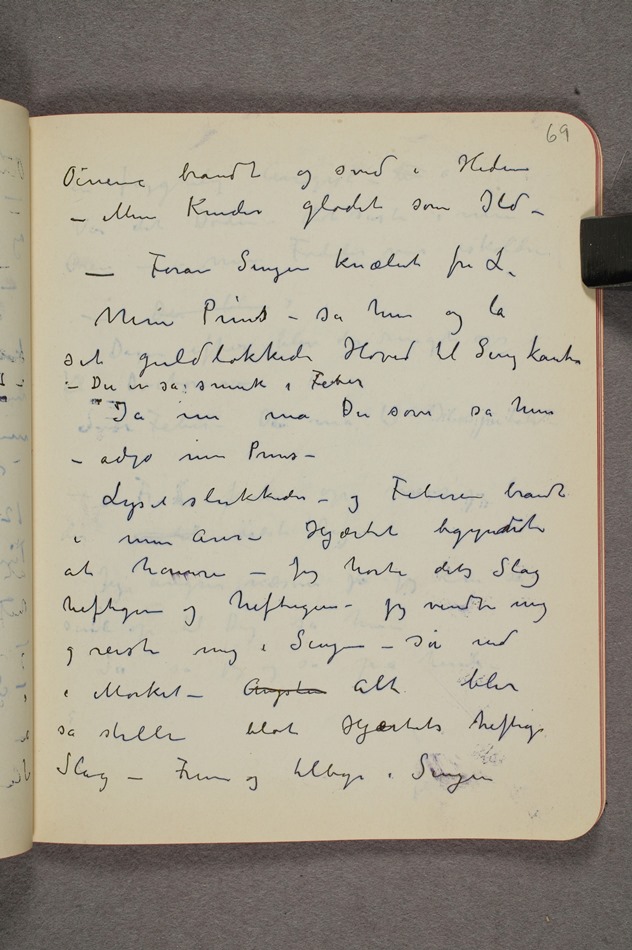 69
Öinene brandt og sved i Heden
– Mine Kinder glødet som Ild –
— Foran Sengen knælet fru L.
Min Prins – sa hun og la
sit guldlokkede Hoved til Sengkanten
– Du er så smuk i Feber
Ja nu må Du sove sa hun
– adjø min Prins –
Lyset slukkedes – og Feberen brandt
i mine Årer – Hjærtet begyndte
at hamre – Jeg hørte dets Slag
heftigere og heftigere – jeg vendte mig
g reiste mig i Sengen – så ud
i Mørket – Angsten alt blev
så stille blot Hjærtets heftige
Slag – Frem og tilbage i Sengen